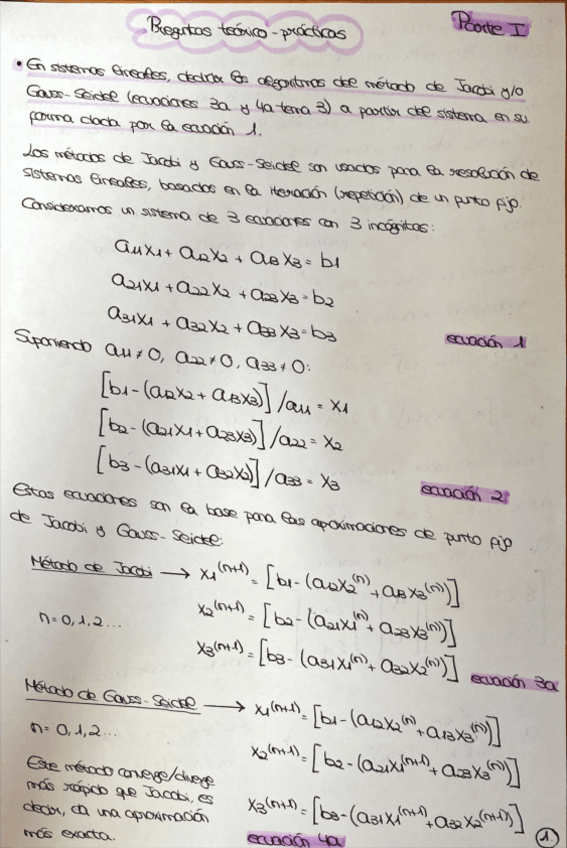 Preguntas teórico-prácticas
Parte I
• En sistemas lineales, deducir los algoritmos del método de Jacobi y/o
Gauss-Seidel (ecuaciones 3a y 4a tema 3) a partir del sistema en su
forma dada por la ecuación 1.
Los métodos de Jacobi y Gauss-Seidel son usados para la resolución de
sistemas lineales, basados en la iteración (repetición) de un punto fijo.
Consideramos un sistema de 3 ecuaciones con 3 incógnitas:
a11x1 + a12x2 + a13x3 = b1
a21x1 + a22x2 + a23x3 = b2
a31x1 + a32x2 + a33x3 = b3
ecuación 1
Suponiendo a11 ≠ 0, a22 ≠ 0, a33 ≠ 0:
[b1 - (a12x2 + a13x3)] / a11 = x1
[b2 - (a21x1 + a23x3)] / a22 = x2
[b3 - (a31x1 + a32x2)] / a33 = x3
ecuación 2
Estas ecuaciones son la base para las aproximaciones de punto fijo
de Jacobi y Gauss-Seidel:
Método de Jacobi → x1^(n+1) = [b1 - (a12x2^(n) + a13x3^(n))]
x2^(n+1) = [b2 - (a21x1^(n) + a23x3^(n))]
n = 0, 1, 2...
x3^(n+1) = [b3 - (a31x1^(n) + a32x2^(n))]
ecuación 3a
Método de Gauss-Seidel → x1^(n+1) = [b1 - (a12x2^(n) + a13x3^(n))]
n = 0, 1, 2...
x2^(n+1) = [b2 - (a21x1^(n+1) + a23x3^(n))]
x3^(n+1) = [b3 - (a31x1^(n+1) + a32x2^(n+1))]
Este método converge/diverge
más rápido que Jacobi, es
decir, da una aproximación
más exacta.
ecuación 4a
1